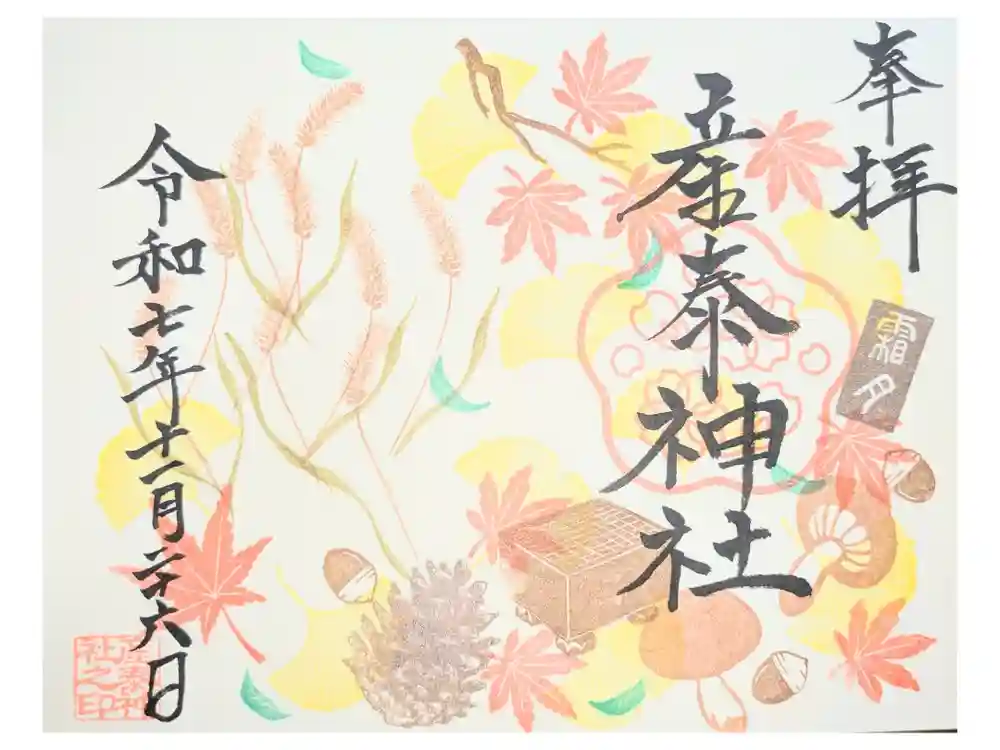 奉拝
霜月
産泰神社
令和七年十一月二十六日
産泰神社之印